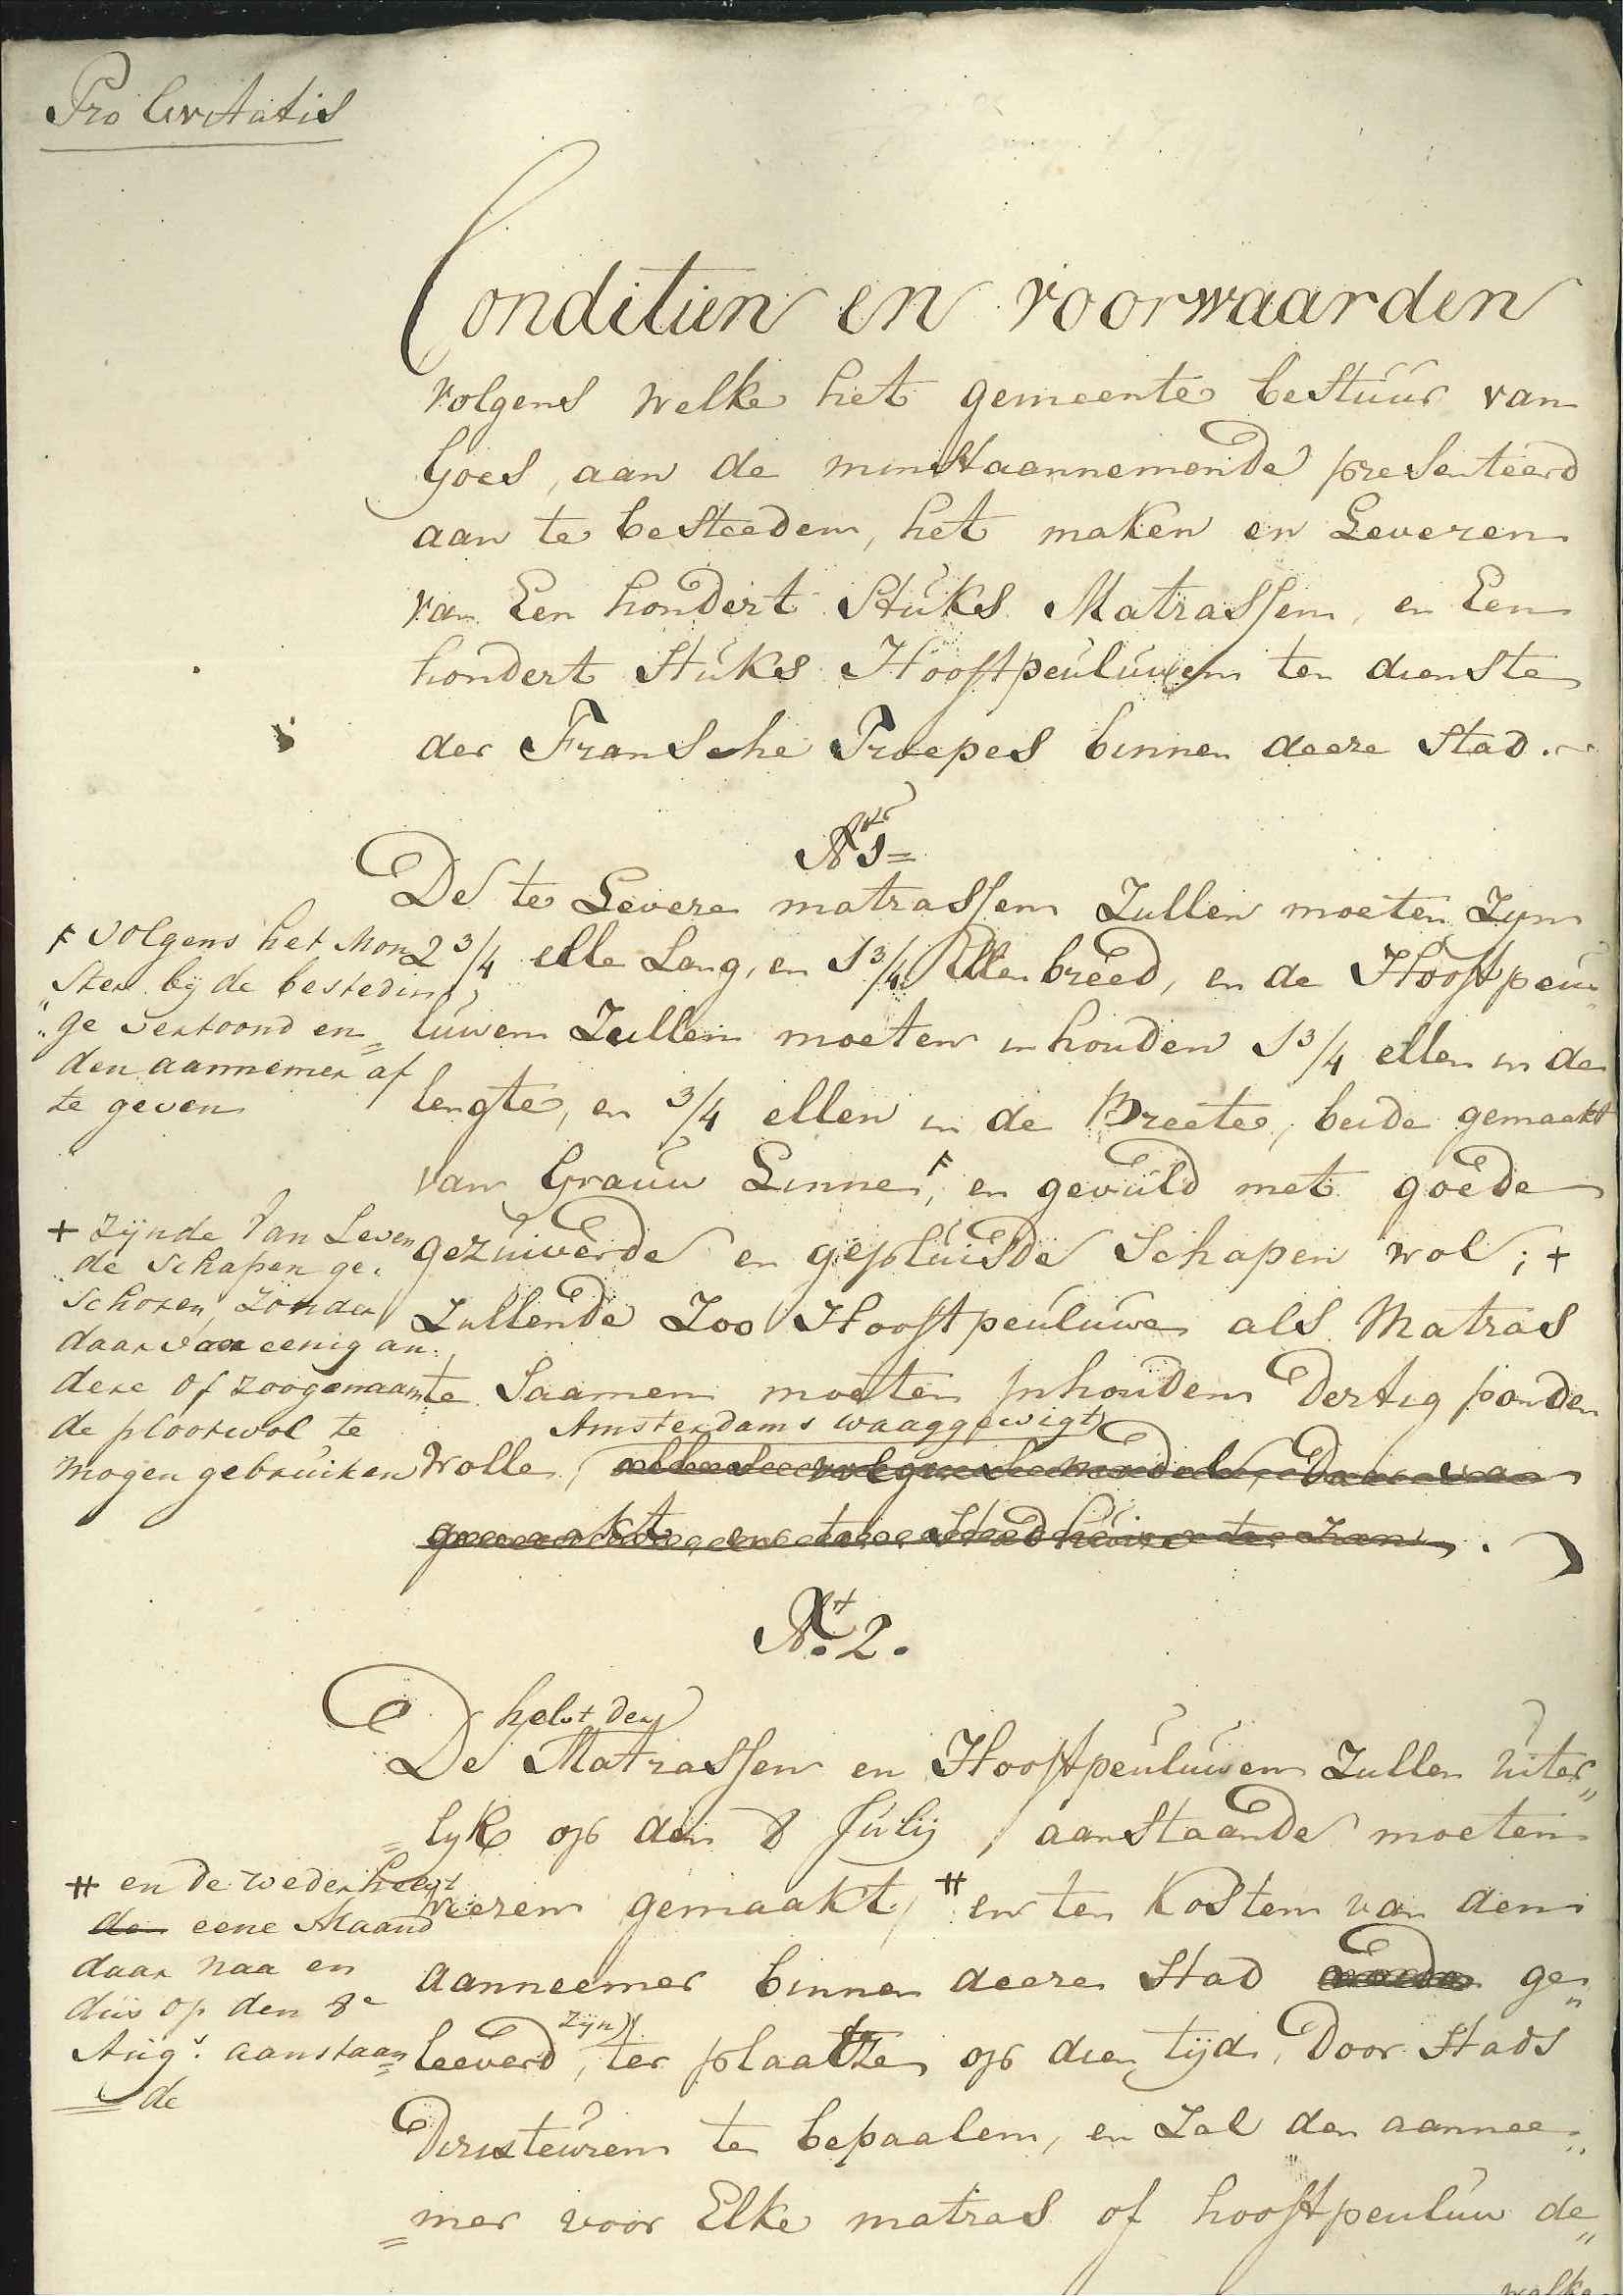 Pro Civitatis
Conditien en voorwaarden
volgens welke het gemeente bestuur van
Goes, aan de minstaannemende presenteerd
aan te besteeden, het maken en Leveren
van Een hondert Stuks Matrassen, en Een
hondert Stuks Hooftpeuluwen ten dienste
der Fransche Troepes binnen deeze Stad.
No 1=
De te Levere matrassen Zullen moeten Zyn
2 3/4 elle Lang, en 1 3/4 Ellen breed, en de Hooftpeu„
luwen Zullen moeten inhouden 1 3/4 ellen in de
lengte, en 3/4 ellen in de Breete, beide gemaakt
van Grauw Linne, F en gevuld met goede
gezuiverde en gepluisde Schapen wol; +
Zullende Zoo Hooftpeuluwe als Matras
te Saamen moeten inhouden Dertig ponden
Amsterdams waaggewigt
Wolle, alles volgens de model, Daar van
gemaakt, en ten Stadhuize te Zien.
F volgens het Mon
ster bij de bestedin
„ge vertoond en
den aannemer af
te geven
+ zijnde van Leven
de Schapen ge„
schoren, zonder
daar van eenig an„
dere of zoogenaam
de plootwol te
mogen gebruiken
No 2.
helvt der
De Matrassen en Hooftpeuluwen Zullen uiter„
lyk op den 8 July, aanstaande moeten
weezen gemaakt, # en ten Kosten van den
aanneemer binnen deeze Stad ge„
zijn
leeverd, ter plaatze op dien tijd, Door Stads
Directeuren te bepaalen, en Zal den aannee„
mer voor Elke matras of hooftpeuluw de„
welke
# en de wederhelvt
de eene Maand
daar naa en
dus op den 8e
Augs. aanstaan
de